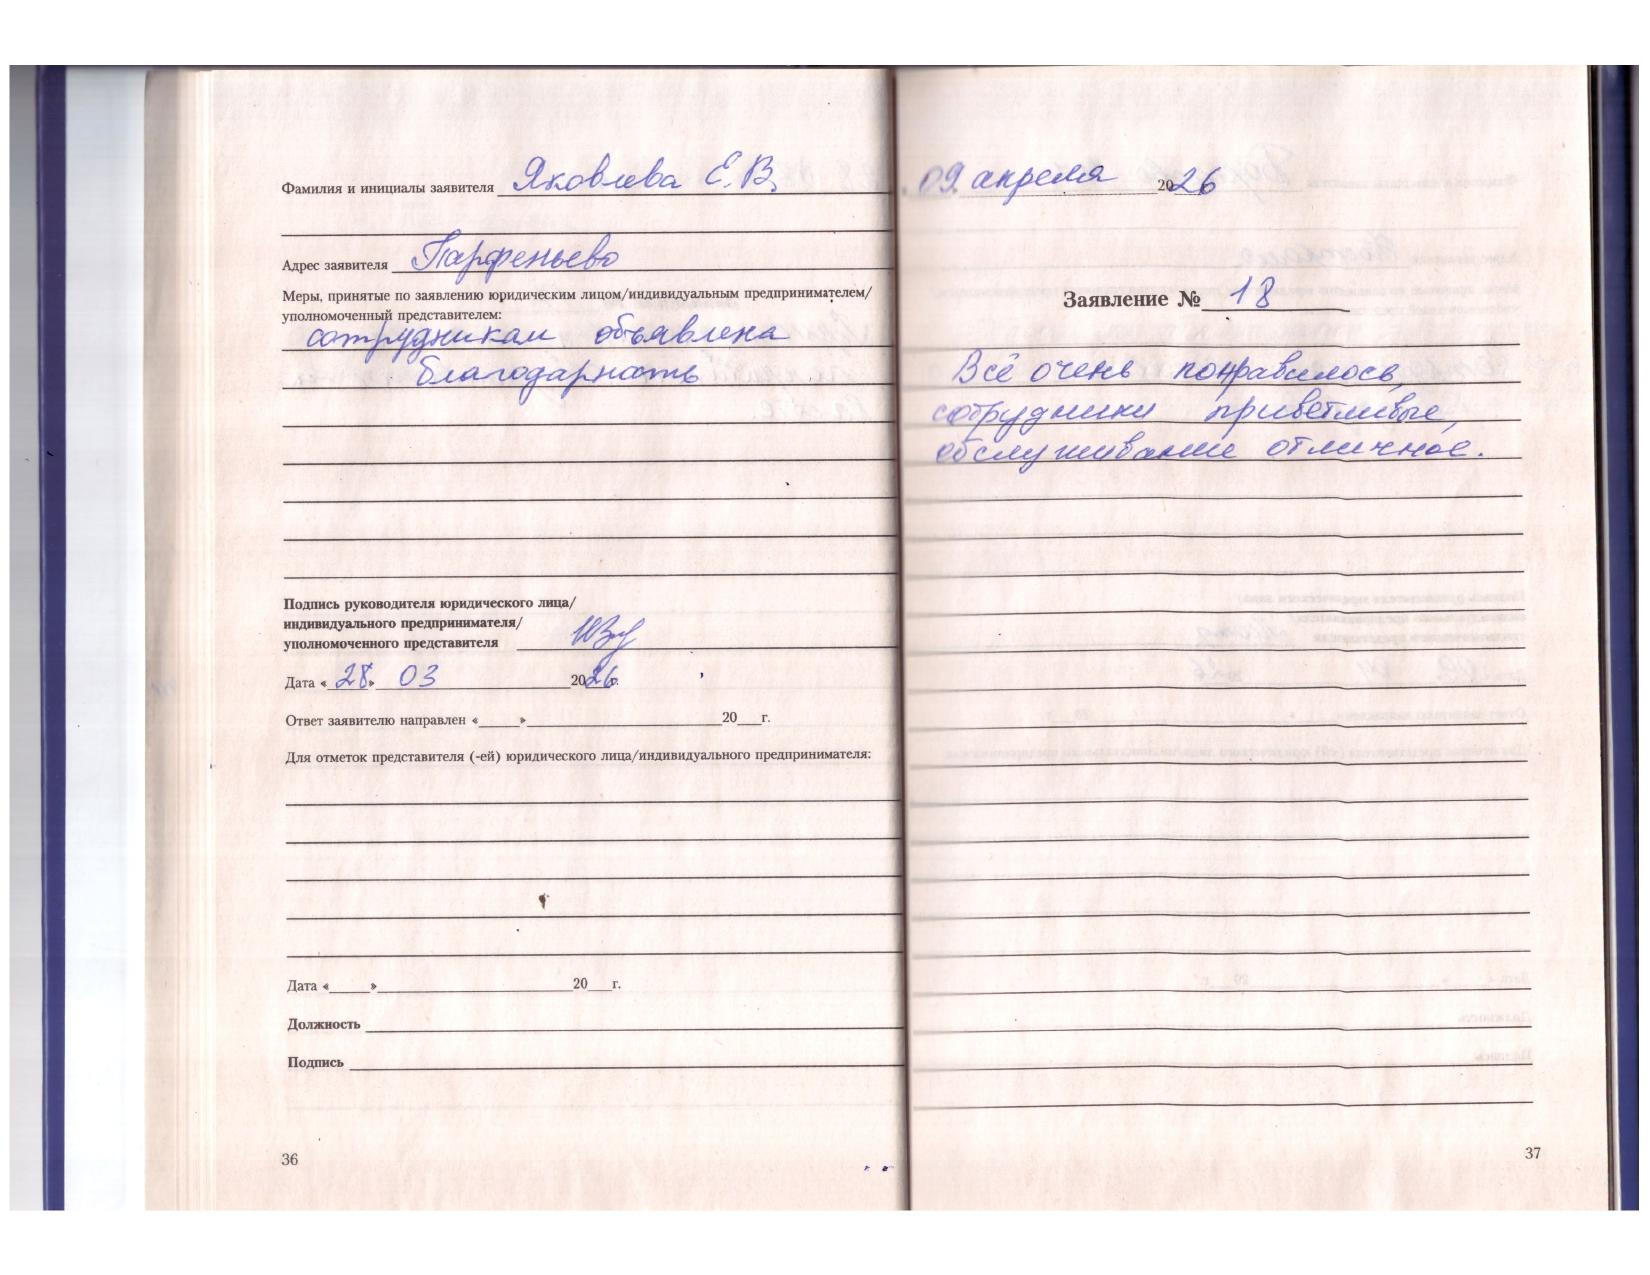 Фамилия и инициалы заявителя Яковлева Е.В.
Адрес заявителя Парфеньево
Меры, принятые по заявлению юридическим лицом/индивидуальным предпринимателем/
уполномоченный представителем:
сотрудникам объявлена
благодарность
Подпись руководителя юридического лица/
индивидуального предпринимателя/
уполномоченного представителя
Дата «28» 03 2026г.
Ответ заявителю направлен «_____»____________________20___г.
Для отметок представителя (-ей) юридического лица/индивидуального предпринимателя:
Дата «_____»____________________20___г.
Должность
Подпись
36
09 апреля 2026
Заявление № 18
Всё очень понравилось,
сотрудники приветливые,
обслуживание отличное.
37